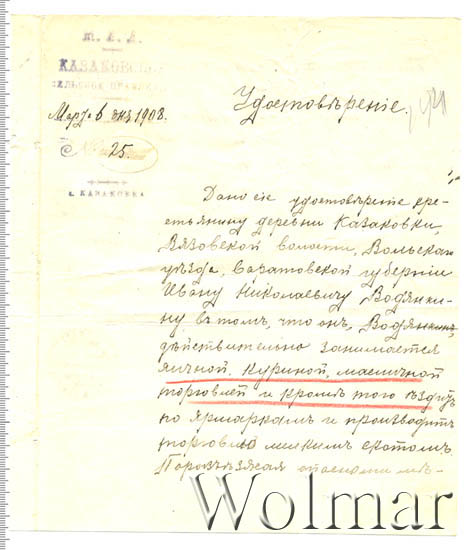 М. В. Д.
КАЗАКОВСК
СЕЛЬСКОЕ ПРАВЛЕН
Март 6 дня 1908.
№ 25.
с. КАЗАКОВКА
Удостовѣреніе.
Дано сіе удостовѣреніе кре-
стьянину деревни Казаковки,
Вязовской волости, Вольскаго
уѣзда, Саратовской губерніи
Ивану Николаевичу Водянки-
ну въ томъ, что онъ, Водянкинъ,
дѣйствительно занимается
яичной, куриной, масличной
торговлей и кромѣ того ѣздитъ
по ярмаркамъ и производитъ
торговлю мелкимъ скотомъ.
мѣ-
Wolmar